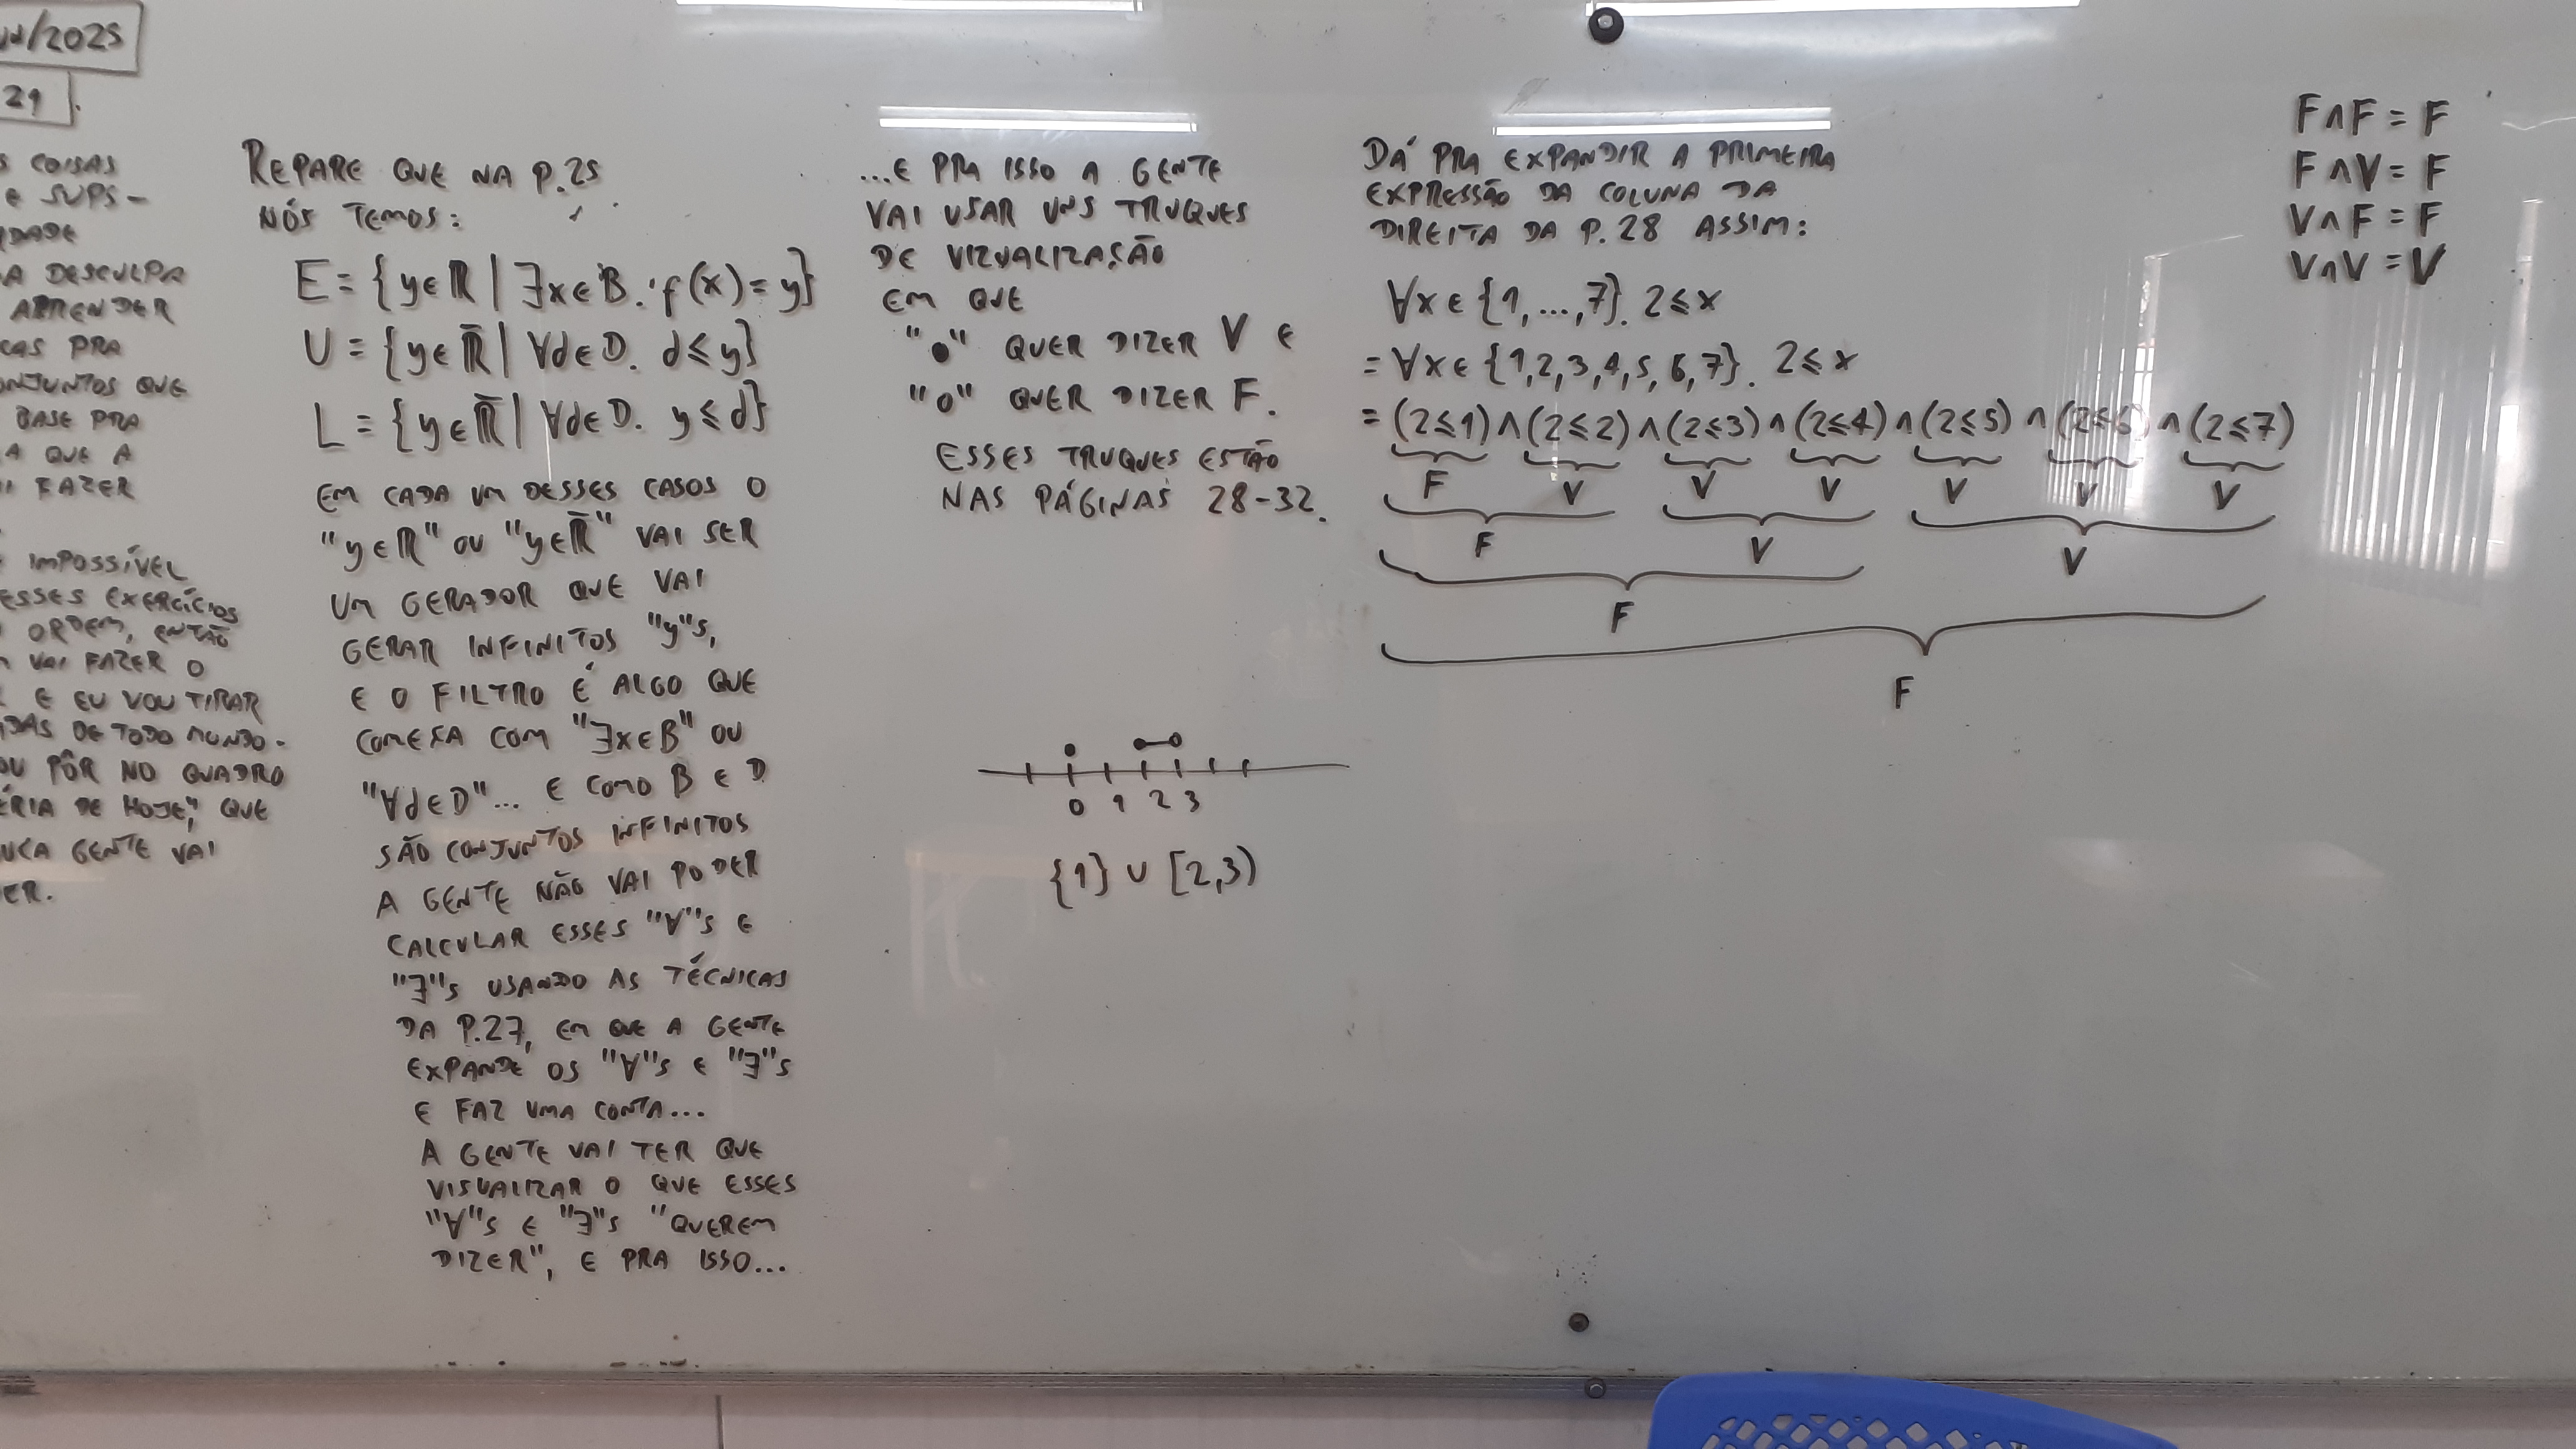 /2025
21
COISAS
E SUPS-
DADE
A DESCULPA
APRENDER
CAS PRA
ONJUNTOS QUE
BASE PRA
A QUE A
FAZER
IMPOSSÍVEL
ESSES EXERCÍCIOS
ORDEM, ENTÃO
VAI FAZER O
E EU VOU TIRAR
DAS DE TODO MUNDO.
OU PÔR NO QUADRO
ÉRIA DE HOJE", QUE
UCA GENTE VAI
ER.
REPARE QUE NA P.25
NÓS TEMOS:
E = {y∈ℝ | ∃x∈B. f(x)=y}
U = {y∈ℝ̅ | ∀d∈D. d≤y}
L = {y∈ℝ̅ | ∀d∈D. y≤d}
EM CADA UM DESSES CASOS O
"y∈ℝ" OU "y∈ℝ̅" VAI SER
UM GERADOR QUE VAI
GERAR INFINITOS "y"s,
E O FILTRO É ALGO QUE
COMEÇA COM "∃x∈B" OU
"∀d∈D"... E COMO B E D
SÃO CONJUNTOS INFINITOS
A GENTE NÃO VAI PODER
CALCULAR ESSES "∀"s E
"∃"s USANDO AS TÉCNICAS
DA P.27, EM QUE A GENTE
EXPANDE OS "∀"s E "∃"s
E FAZ UMA CONTA...
A GENTE VAI TER QUE
VISUALIZAR O QUE ESSES
"∀"s E "∃"s "QUEREM
DIZER", E PRA ISSO...
...E PRA ISSO A GENTE
VAI USAR UNS TRUQUES
DE VIZUALIZAÇÃO
EM QUE
"●" QUER DIZER V E
"o" QUER DIZER F.
ESSES TRUQUES ESTÃO
NAS PÁGINAS 28-32.
0 1 2 3
{1} ∪ [2,3)
DÁ PRA EXPANDIR A PRIMEIRA
EXPRESSÃO DA COLUNA DA
DIREITA DA P.28 ASSIM:
∀x∈{1,...,7}. 2≤x
= ∀x∈{1,2,3,4,5,6,7}. 2≤x
= (2≤1)∧(2≤2)∧(2≤3)∧(2≤4)∧(2≤5)∧(2≤6)∧(2≤7)
F V V V V V V
F V V
F
F
F∧F = F
F∧V = F
V∧F = F
V∧V = V